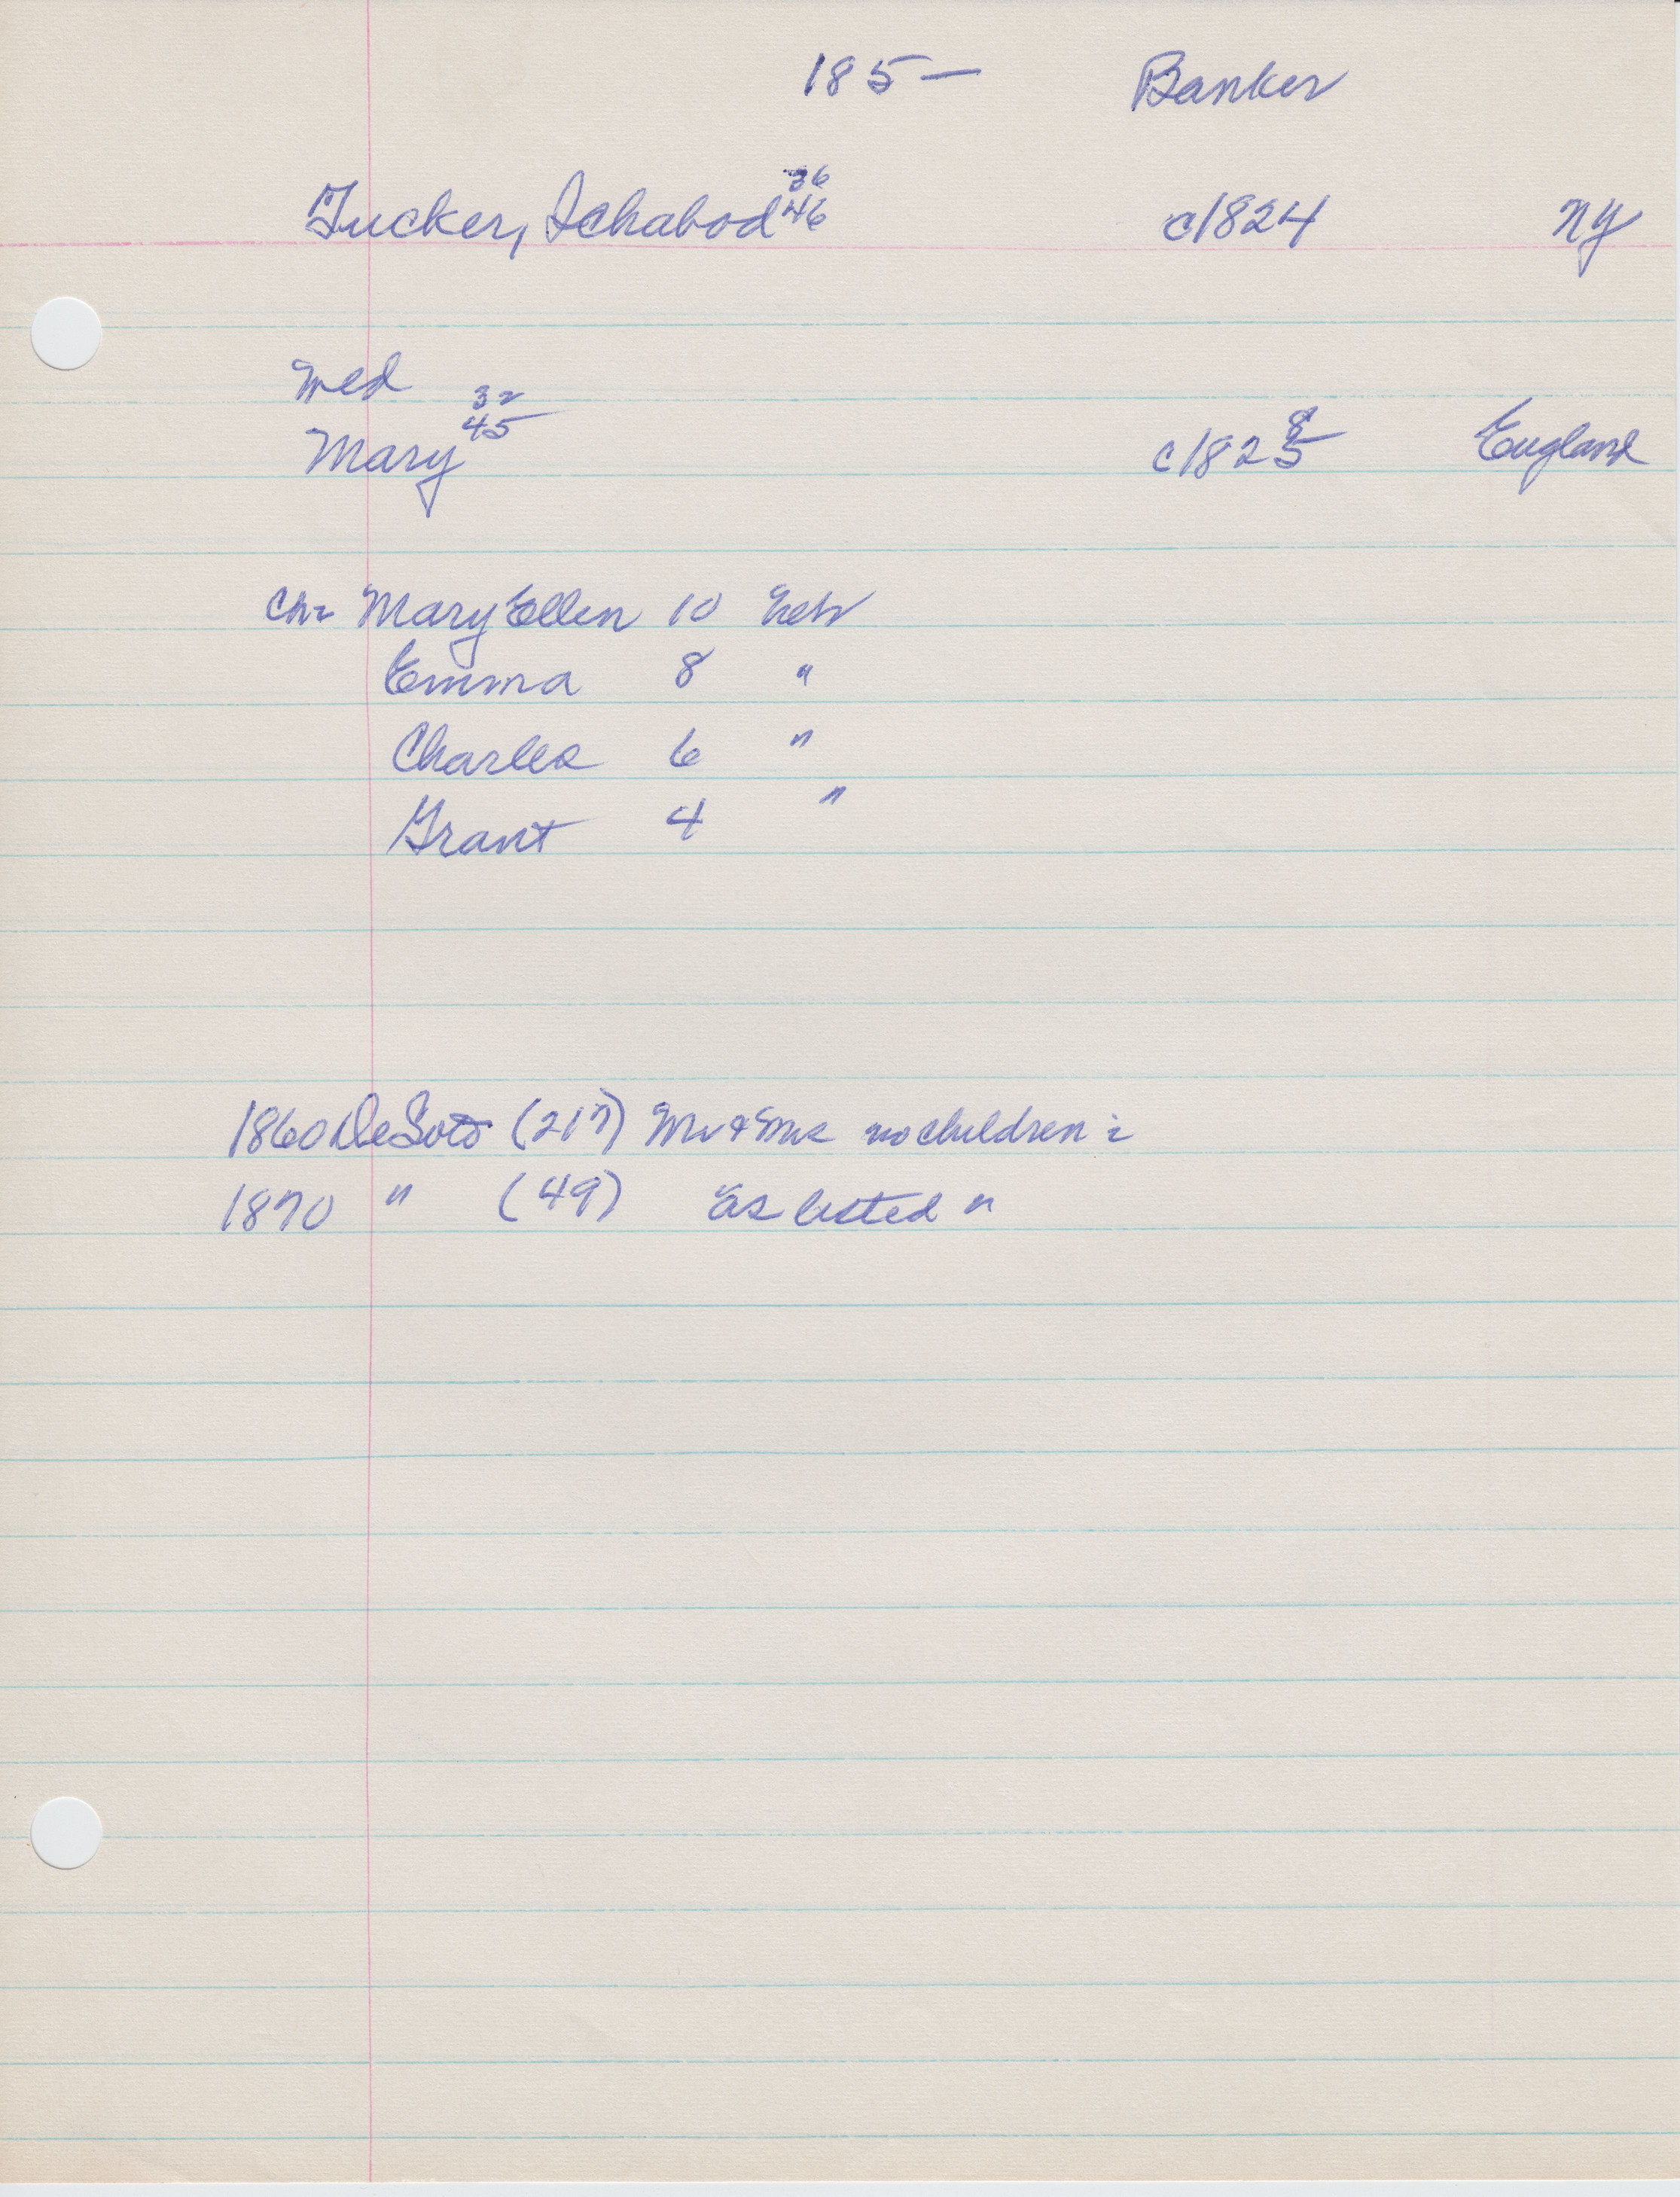 185— Banker
36
Tucker, Ichabod 46 c1824 NY
Med
32
45 8
Mary c1825 England
Ch= Mary Ellen 10 Neb
Emma 8 "
Charles 6 "
Grant 4 "
1860 DeSoto (217) Mr & Mrs no children
1870 " (49) As listed "